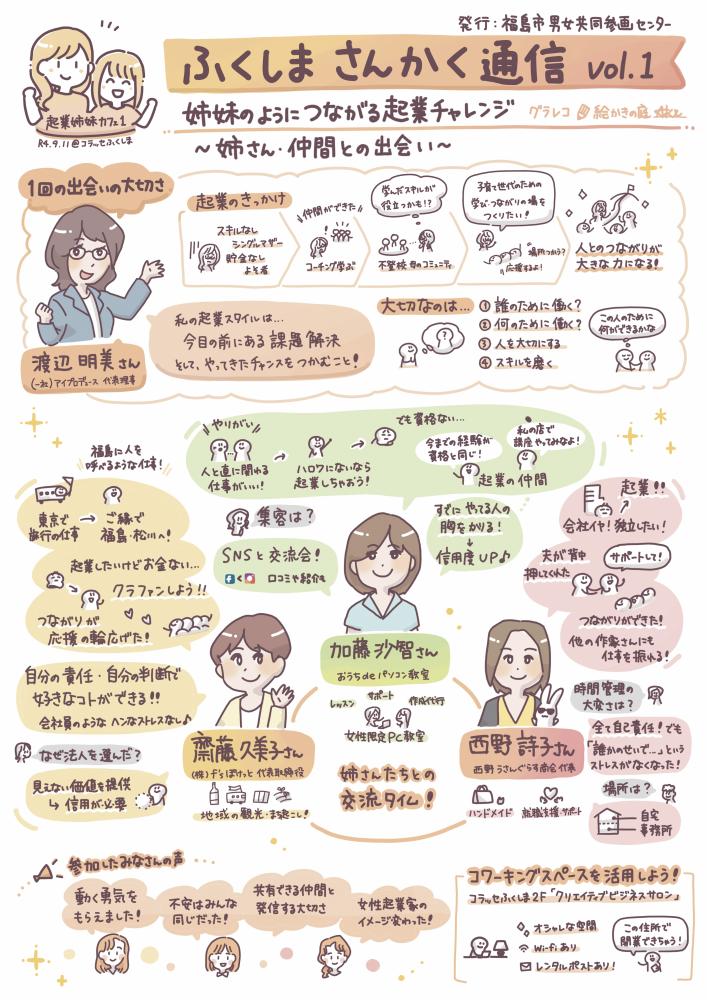 発行：福島市男女共同参画センター
ふくしま さんかく通信 vol.1
姉妹のようにつながる起業チャレンジ
グラレコ 絵かきの庭
～姉さん・仲間との出会い～
起業姉妹カフェ1
R4.9.11@コラッセふくしま
1回の出会いの大切さ
渡辺 明美さん
(一社)アイプロデュース 代表理事
起業のきっかけ
スキルなし
シングルマザー
貯金なし
よそ者
仲間ができた
コーチング学ぶ
学んだスキルが
役立つかも!?
不登校 母のコミュニティ
子育て世代のための
学び・つながりの場を
つくりたい！
場所つかう？
応援するよ！
人とのつながりが
大きな力になる！
私の起業スタイルは…
今目の前にある課題解決
そして、やってきたチャンスをつかむこと！
大切なのは…
① 誰のために働く？
② 何のために働く？
③ 人を大切にする
④ スキルを磨く
この人のために
何ができるかな
福島に人を
呼べるような仕事！
東京で
旅行の仕事
→
ご縁で
福島・松川へ！
起業したいけどお金ない…
クラファンしよう!!
つながりが
応援の輪広げた！
自分の責任・自分の判断で
好きなコトができる!!
会社員のような ヘンなストレスなし♪
なぜ法人を選んだ？
見えない価値を提供
↳ 信用が必要
齋藤 久美子さん
地域の観光・まち起こし！
やりがい
人と直に関れる
仕事がいい！
ハロワにないなら
起業しちゃおう！
でも資格ない…
今までの経験が
資格と同じ！
私の店で
講座やってみなよ！
起業の仲間
集客は？
SNSと交流会！
口コミや紹介も
すでに やってる人の
胸をかりる！
↓
信用度UP♪
加藤 沙智さん
おうちdeパソコン教室
レッスン
サポート
作成代行
女性限定PC教室
姉さんたちとの
交流タイム！
起業!!
会社イヤ！独立したい！
夫が背中
押してくれた
サポートして！
つながりができた！
他の作家さんにも
仕事を振れる！
西野 詩子さん
西野うさんぐらす商会 代表
ハンドメイド
就職支援・サポート
時間管理の
大変さは？
全て自己責任！でも
「誰かのせいで…」という
ストレスがなくなった！
場所は？
自宅
事務所
参加したみなさんの声
動く勇気を
もらえました！
不安はみんな
同じだった！
共有できる仲間と
発信する大切さ
女性起業家の
イメージ変わった！
コワーキングスペースを活用しよう！
コラッセふくしま2F「クリエイティブビジネスサロン」
オシャレな空間
Wi-Fiあり
レンタルポストあり！
この住所で
開業できちゃう！